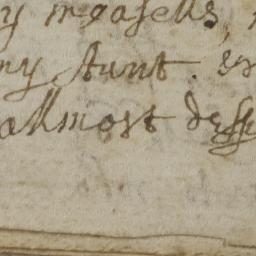 y measells,
my Aunt.
allmost